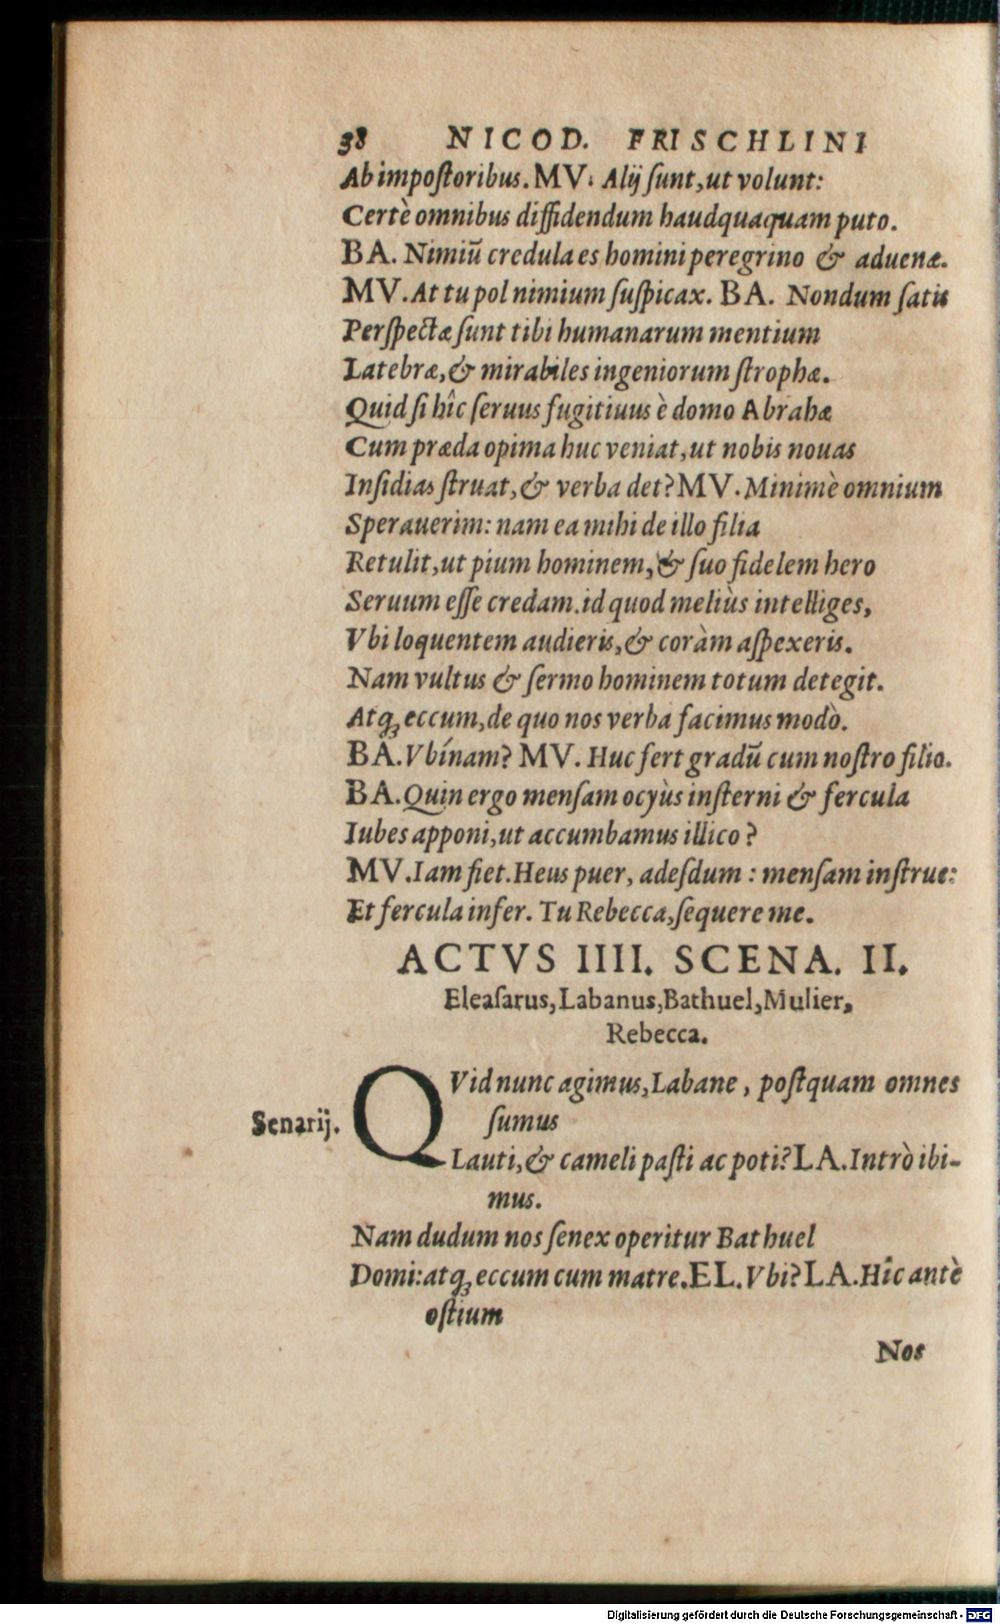 38 NICOD. FRISCHLINI
Ab impoſtoribus. MV. Alij ſunt, ut volunt:
Certè omnibus diffidendum haudquaquam puto.
BA. Nimiũ credula es homini peregrino & aduenæ.
MV. At tu pol nimium ſuſpicax. BA. Nondum ſatis
Perſpectæ ſunt tibi humanarum mentium
Latebræ, & mirabiles ingeniorum ſtrophæ.
Quid ſi hîc ſeruus fugitiuus è domo Abrahæ
Cum præda opima huc veniat, ut nobis nouas
Inſidias ſtruat, & verba det? MV. Minimè omnium
Sperauerim: nam ea mihi de illo filia
Retulit, ut pium hominem, & ſuo fidelem hero
Seruum eſſe credam. id quod meliùs intelliges,
Vbi loquentem audieris, & coràm aſpexeris.
Nam vultus & ſermo hominem totum detegit.
Atq; eccum, de quo nos verba facimus modò.
BA. Vbínam? MV. Huc fert gradũ cum noſtro filio.
BA. Quin ergo menſam ocyùs inſterni & fercula
Iubes apponi, ut accumbamus illico?
MV. Iam fiet. Heus puer, adeſdum: menſam inſtrue:
Et fercula infer. Tu Rebecca, ſequere me.
ACTVS IIII. SCENA. II.
Eleaſarus, Labanus, Bathuel, Mulier,
Rebecca.
QVid nunc agimus, Labane, poſtquam omnes
ſumus
Senarij.
Lauti, & cameli paſti ac poti? LA. Intrò ibi-
mus.
Nam dudum nos ſenex operitur Bathuel
Domi: atq; eccum cum matre. EL. Vbi? LA. Hîc antè
oſtium
Nos
Digitalisierung gefördert durch die Deutsche Forschungsgemeinschaft - DFG